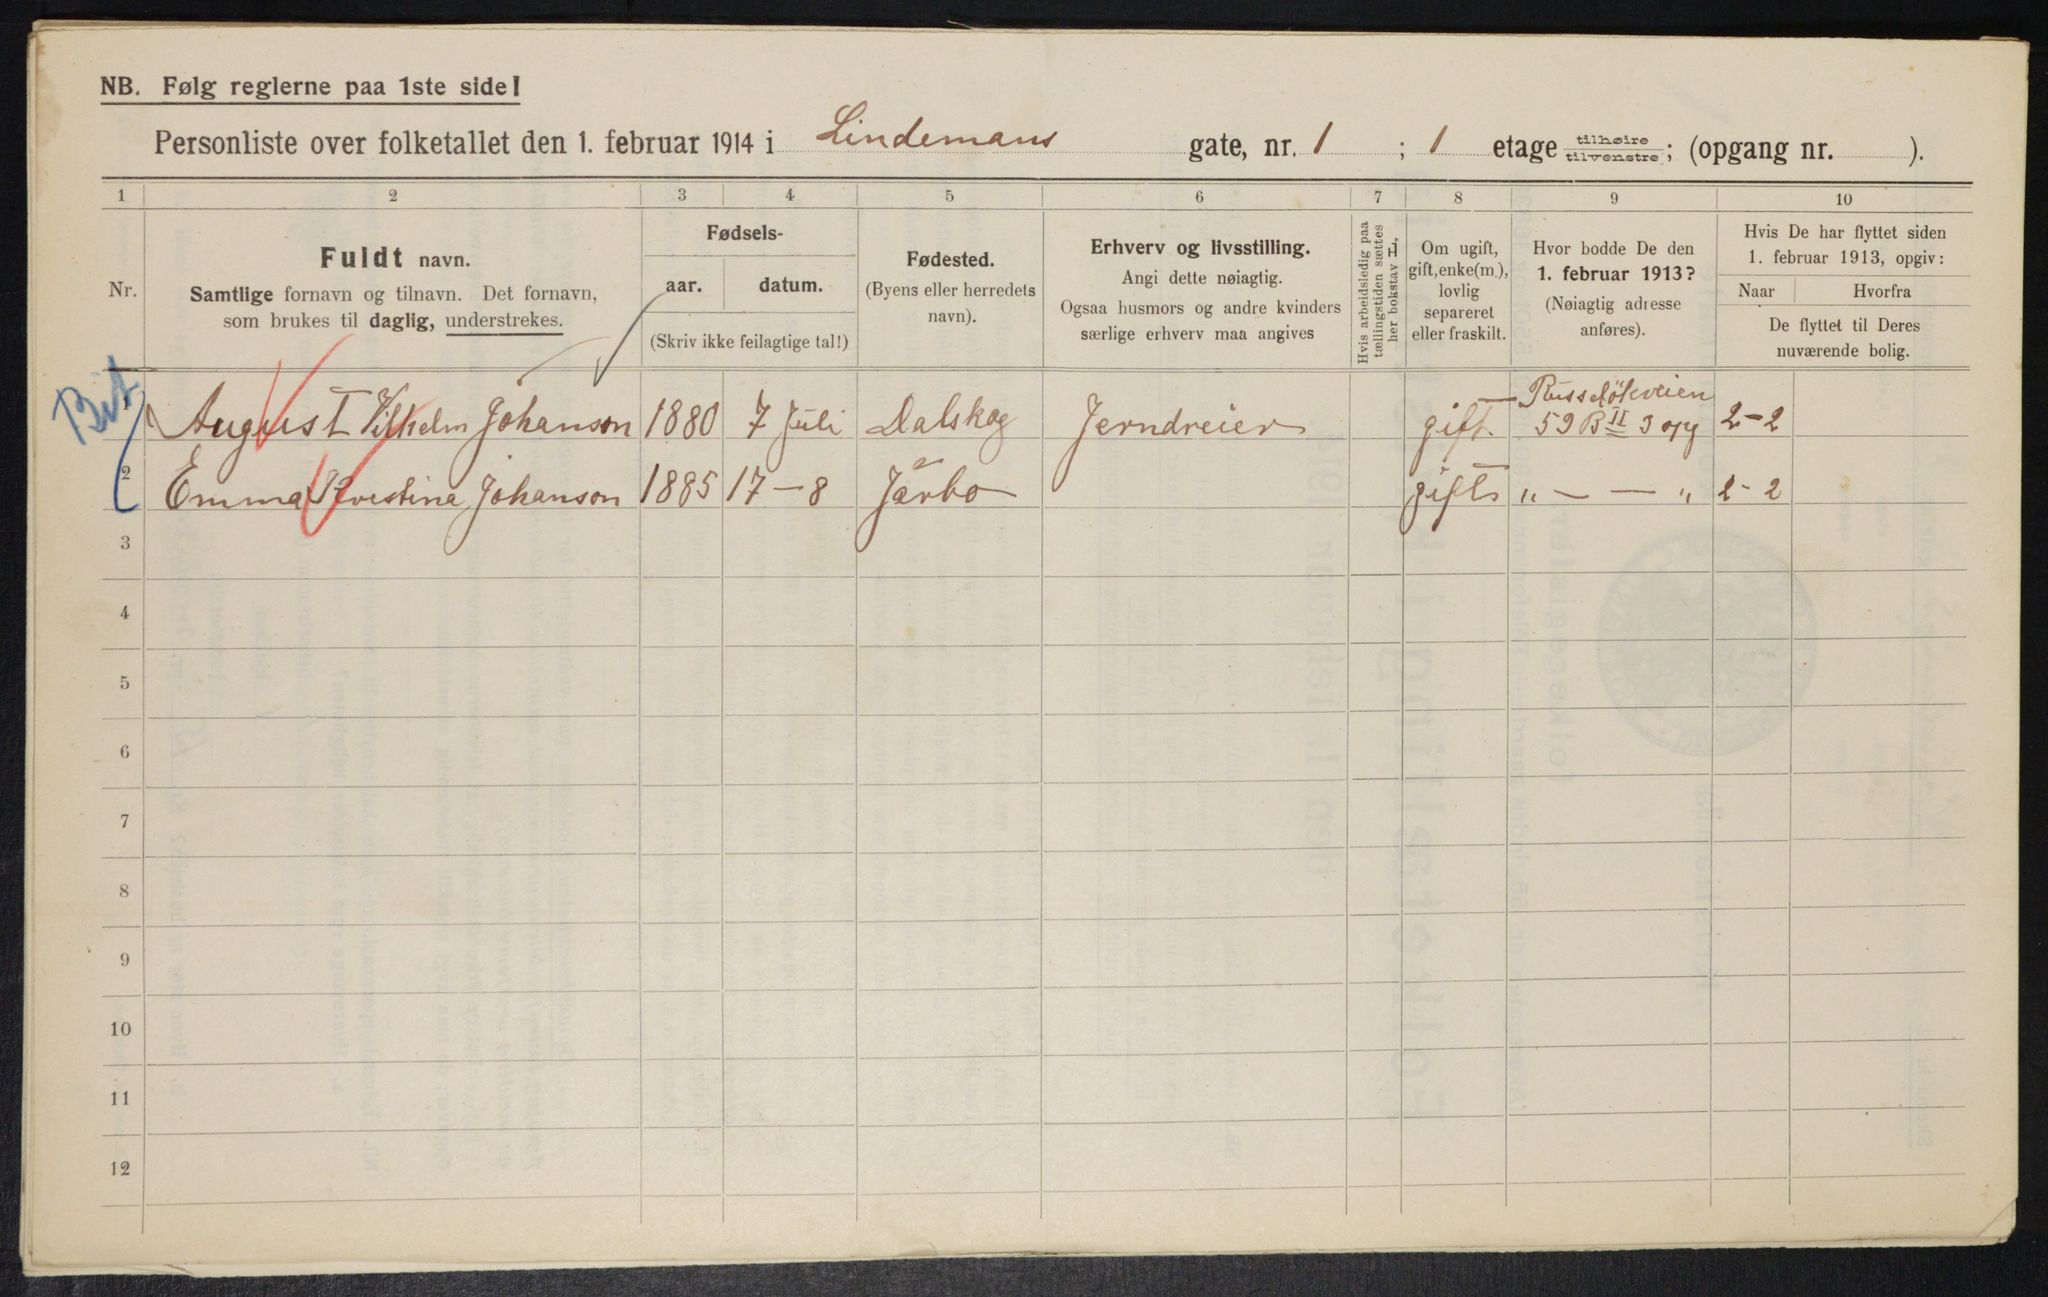 NB. Følg reglerne paa 1ste side!
Personliste over folketallet den 1. februar 1914 i Lindemans gate, nr. 1 ; 1 etage tilhøire tilvenstre; (opgang nr. ).
1 2 3 4 5 6 7 8 9 10
Nr.
Fuldt navn.
Samtlige fornavn og tilnavn. Det fornavn,
som brukes til daglig, understrekes.
Fødsels-
aar. datum.
(Skriv ikke feilagtige tal!)
Fødested.
(Byens eller herredets
navn).
Erhverv og livsstilling.
Angi dette nøiagtig.
Ogsaa husmors og andre kvinders
særlige erhverv maa angives
Hvis arbeidsledig paa
tællingstiden sættes
her bokstav L.
Om ugift,
gift, enke(m.),
lovlig
separeret
eller fraskilt.
Hvor bodde De den
1. februar 1913?
(Nøiagtig adresse
anføres).
Hvis De har flyttet siden
1. februar 1913, opgiv:
Naar Hvorfra
De flyttet til Deres
nuværende bolig.
August Vilhelm Johanson 1880 7 Juli Dalskog Jerndreier gift. 59 B II 3 opg 2-2
2 Emma Kristina Johanson 1885 17-8 Järbo gift " — — " 2-2
3
4
5
6
7
8
9
10
11
12